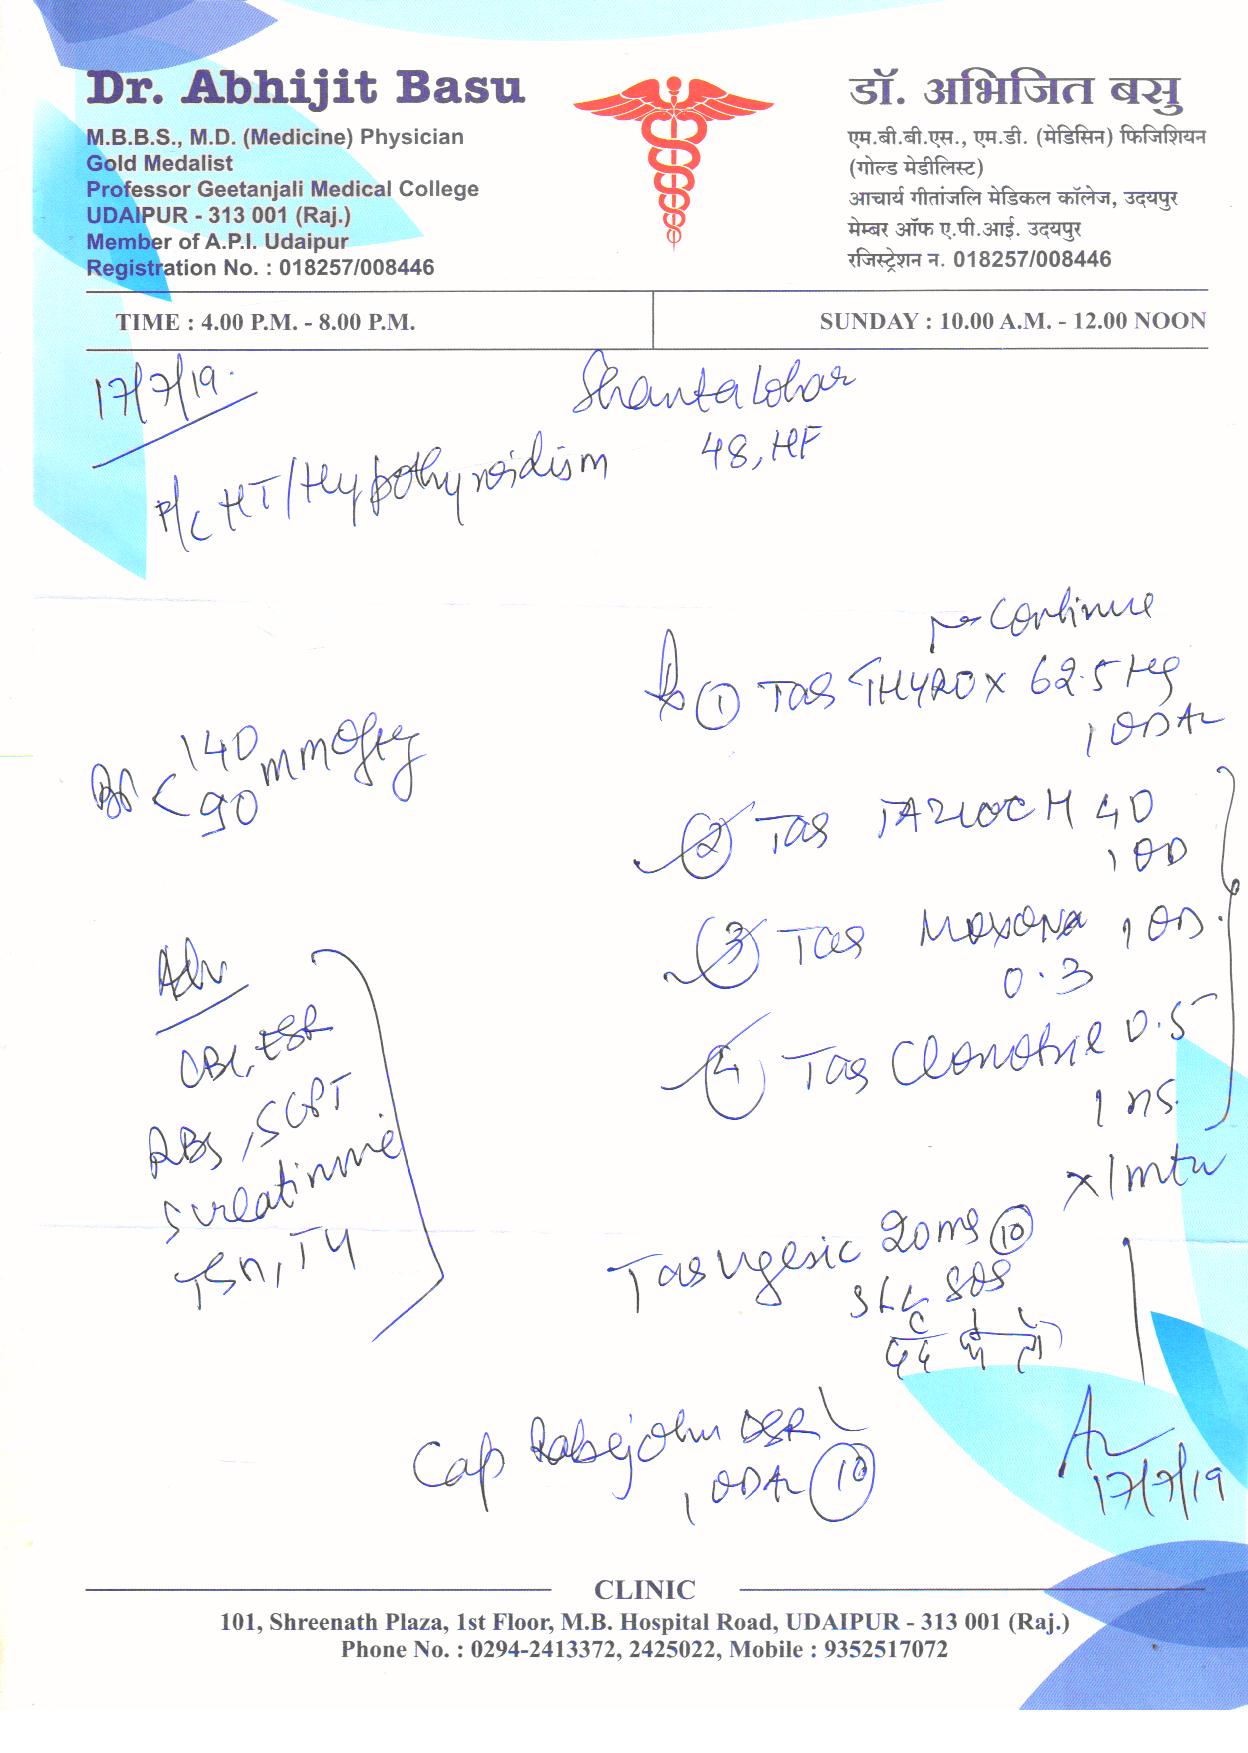 Dr. Abhijit Basu
M.B.B.S., M.D. (Medicine) Physician
Gold Medalist
Professor Geetanjali Medical College
UDAIPUR - 313 001 (Raj.)
Member of A.P.I. Udaipur
Registration No. : 018257/008446
डॉ. अभिजित बसु
एम.बी.बी.एस., एम.डी. (मेडिसिन) फिजिशियन
(गोल्ड मेडीलिस्ट)
आचार्य गीतांजलि मेडिकल कॉलेज, उदयपुर
मेम्बर ऑफ ए.पी.आई. उदयपुर
रजिस्ट्रेशन न. 018257/008446
TIME : 4.00 P.M. - 8.00 P.M.
SUNDAY : 10.00 A.M. - 12.00 NOON
17/7/19.
Shanta Lohar
48, HF
HT/Hypothyroidism
BP < 140/90 mmOfHg
Adv
CBC, ESR
RBS, SGPT
S creatinine
TSH, T4
continue
Rx ① Tab THYROX 62.5 Mg
1 ODAC
② Tab TAZLOC H 40
1 OD
③ Tab MOXONA 1 OD.
0.3
④ Tab Clonotril 0.5
1 HS.
x 1 mth
Tab Ugesic 20mg ⑩
S/L SOS
दर्द में लो
Cap Rabejohn DSR
1 ODAC ⑩
17/7/19
CLINIC
101, Shreenath Plaza, 1st Floor, M.B. Hospital Road, UDAIPUR - 313 001 (Raj.)
Phone No. : 0294-2413372, 2425022, Mobile : 9352517072